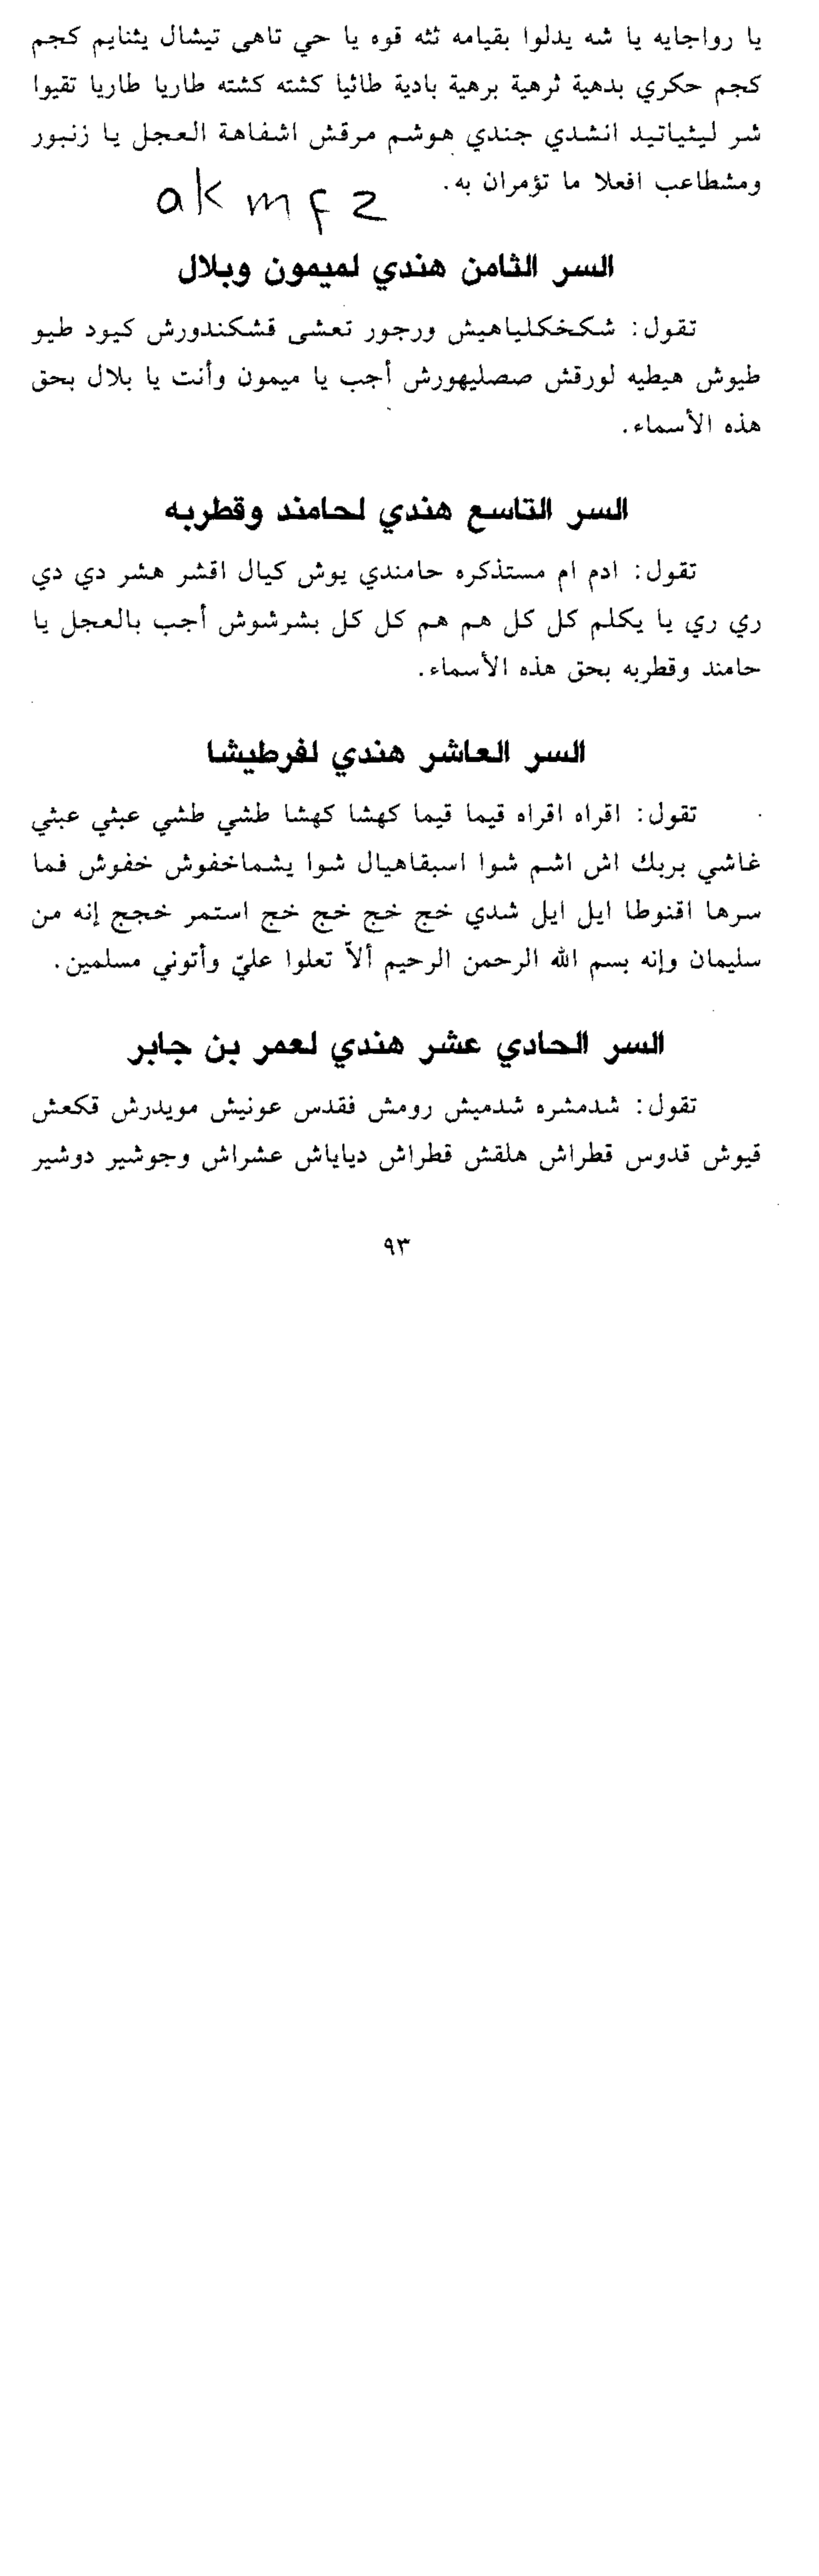 يا رواجايه يا شه يدلوا بقيامه ثثه قوه يا حي تاهى تيشال يثنايم كجم
كجم حكري بدهية ثرهية برهية بادية طائيا كشته كشته طاريا طاريا تقيوا
شر ليثياتيد انشدي جندي هوشم مرقش اشفاهة العجل يا زنبور
ومشطاعب افعلا ما تؤمران به.
akmfz
السر الثامن هندي لميمون وبلال
تقول: شكخكلياهيش ورجور تعشى قشكندورش كيود طيو
طيوش هيطيه لورقش صصليهورش أجب يا ميمون وأنت يا بلال بحق
هذه الأسماء.
السر التاسع هندي لحامند وقطربه
تقول: ادم ام مستذكره حامندي يوش كيال اقشر هشر دي دي
ري ري يا يكلم كل كل هم هم كل كل بشرشوش أجب بالعجل يا
حامند وقطربه بحق هذه الأسماء.
السر العاشر هندي لفرطيشا
تقول: اقراه اقراه قيما قيما كهشا كهشا طشي طشي عبثي عبثي
غاشي بربك اش اشم شوا اسبقاهيال شوا يشماخفوش خفوش فما
سرها اقنوطا ايل ايل شدي خج خج خج خج استمر خجج إنه من
سليمان وإنه بسم الله الرحمن الرحيم ألاّ تعلوا عليّ وأتوني مسلمين.
السر الحادي عشر هندي لعمر بن جابر
تقول: شدمشره شدميش رومش فقدس عونيش مويدرش قكعش
قيوش قدوس قطراش هلقش قطراش دياياش عشراش وجوشير دوشير
٩٣